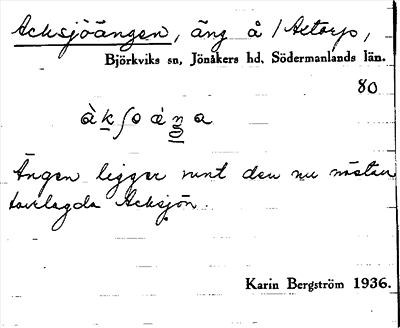 Acksjöängen, äng å /Actorp,
Björkviks sn, Jönåkers hd, Södermanlands län.
80
Ängen ligger runt den nu nästan
torrlagda Acksjön.
Karin Bergström 1936.